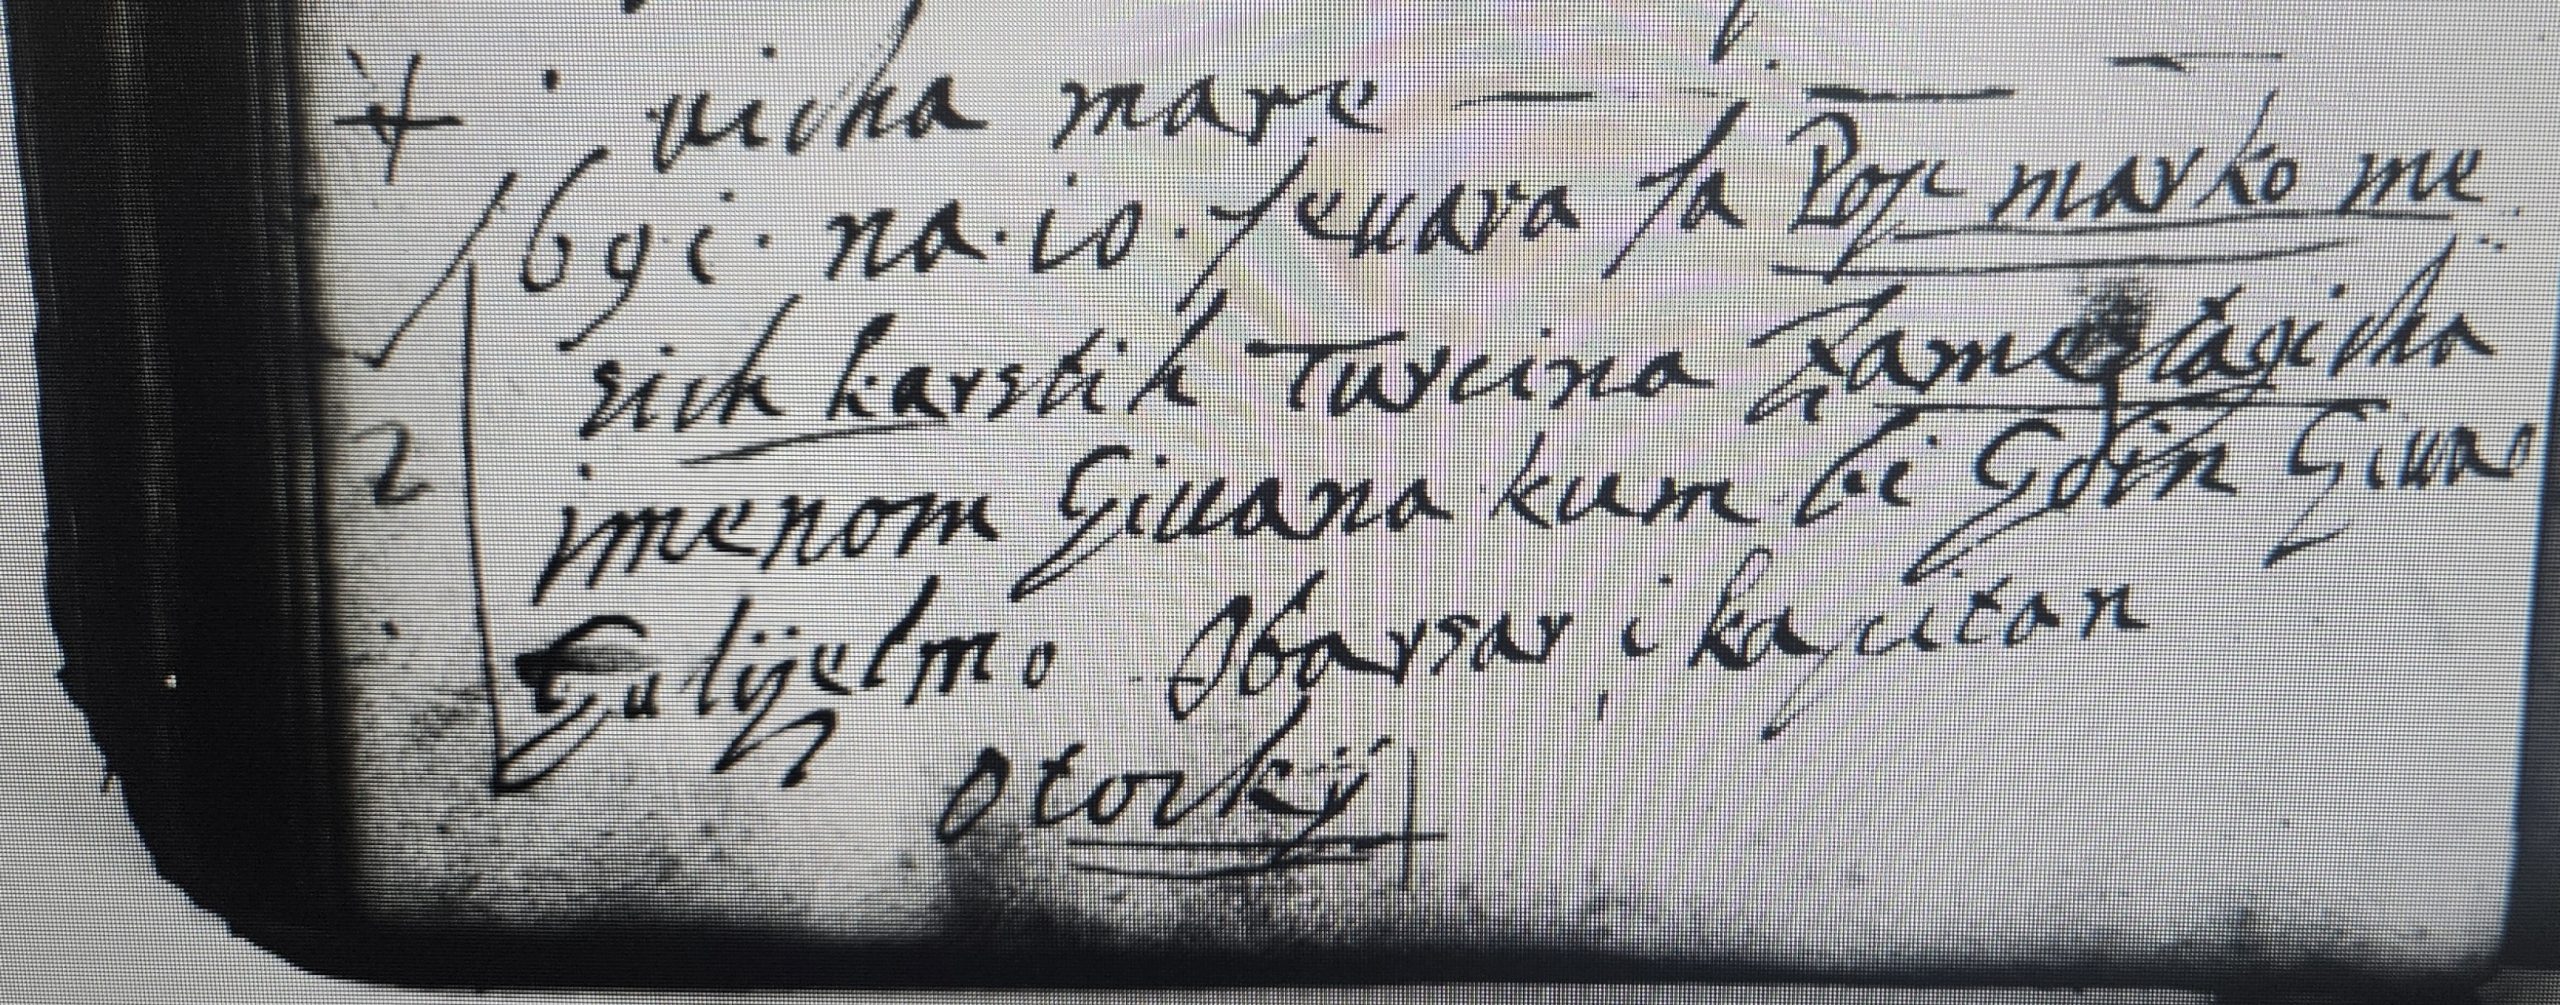 + vicha mare
1691. na. 10. fevara ja Pop marko me
2 sich karstih Turcina
imenom Givana kum bi Gdin Givan
Gulijelmo Obarsar i kapitan
Otocky